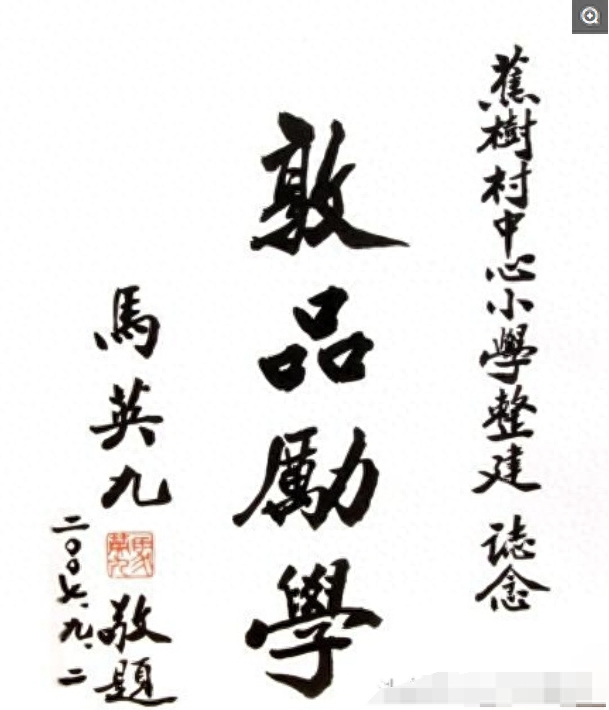 蕉樹村中心小學整建 誌念
敦品勵學
馬英九 敬題
馬英九
二〇〇七.九.二